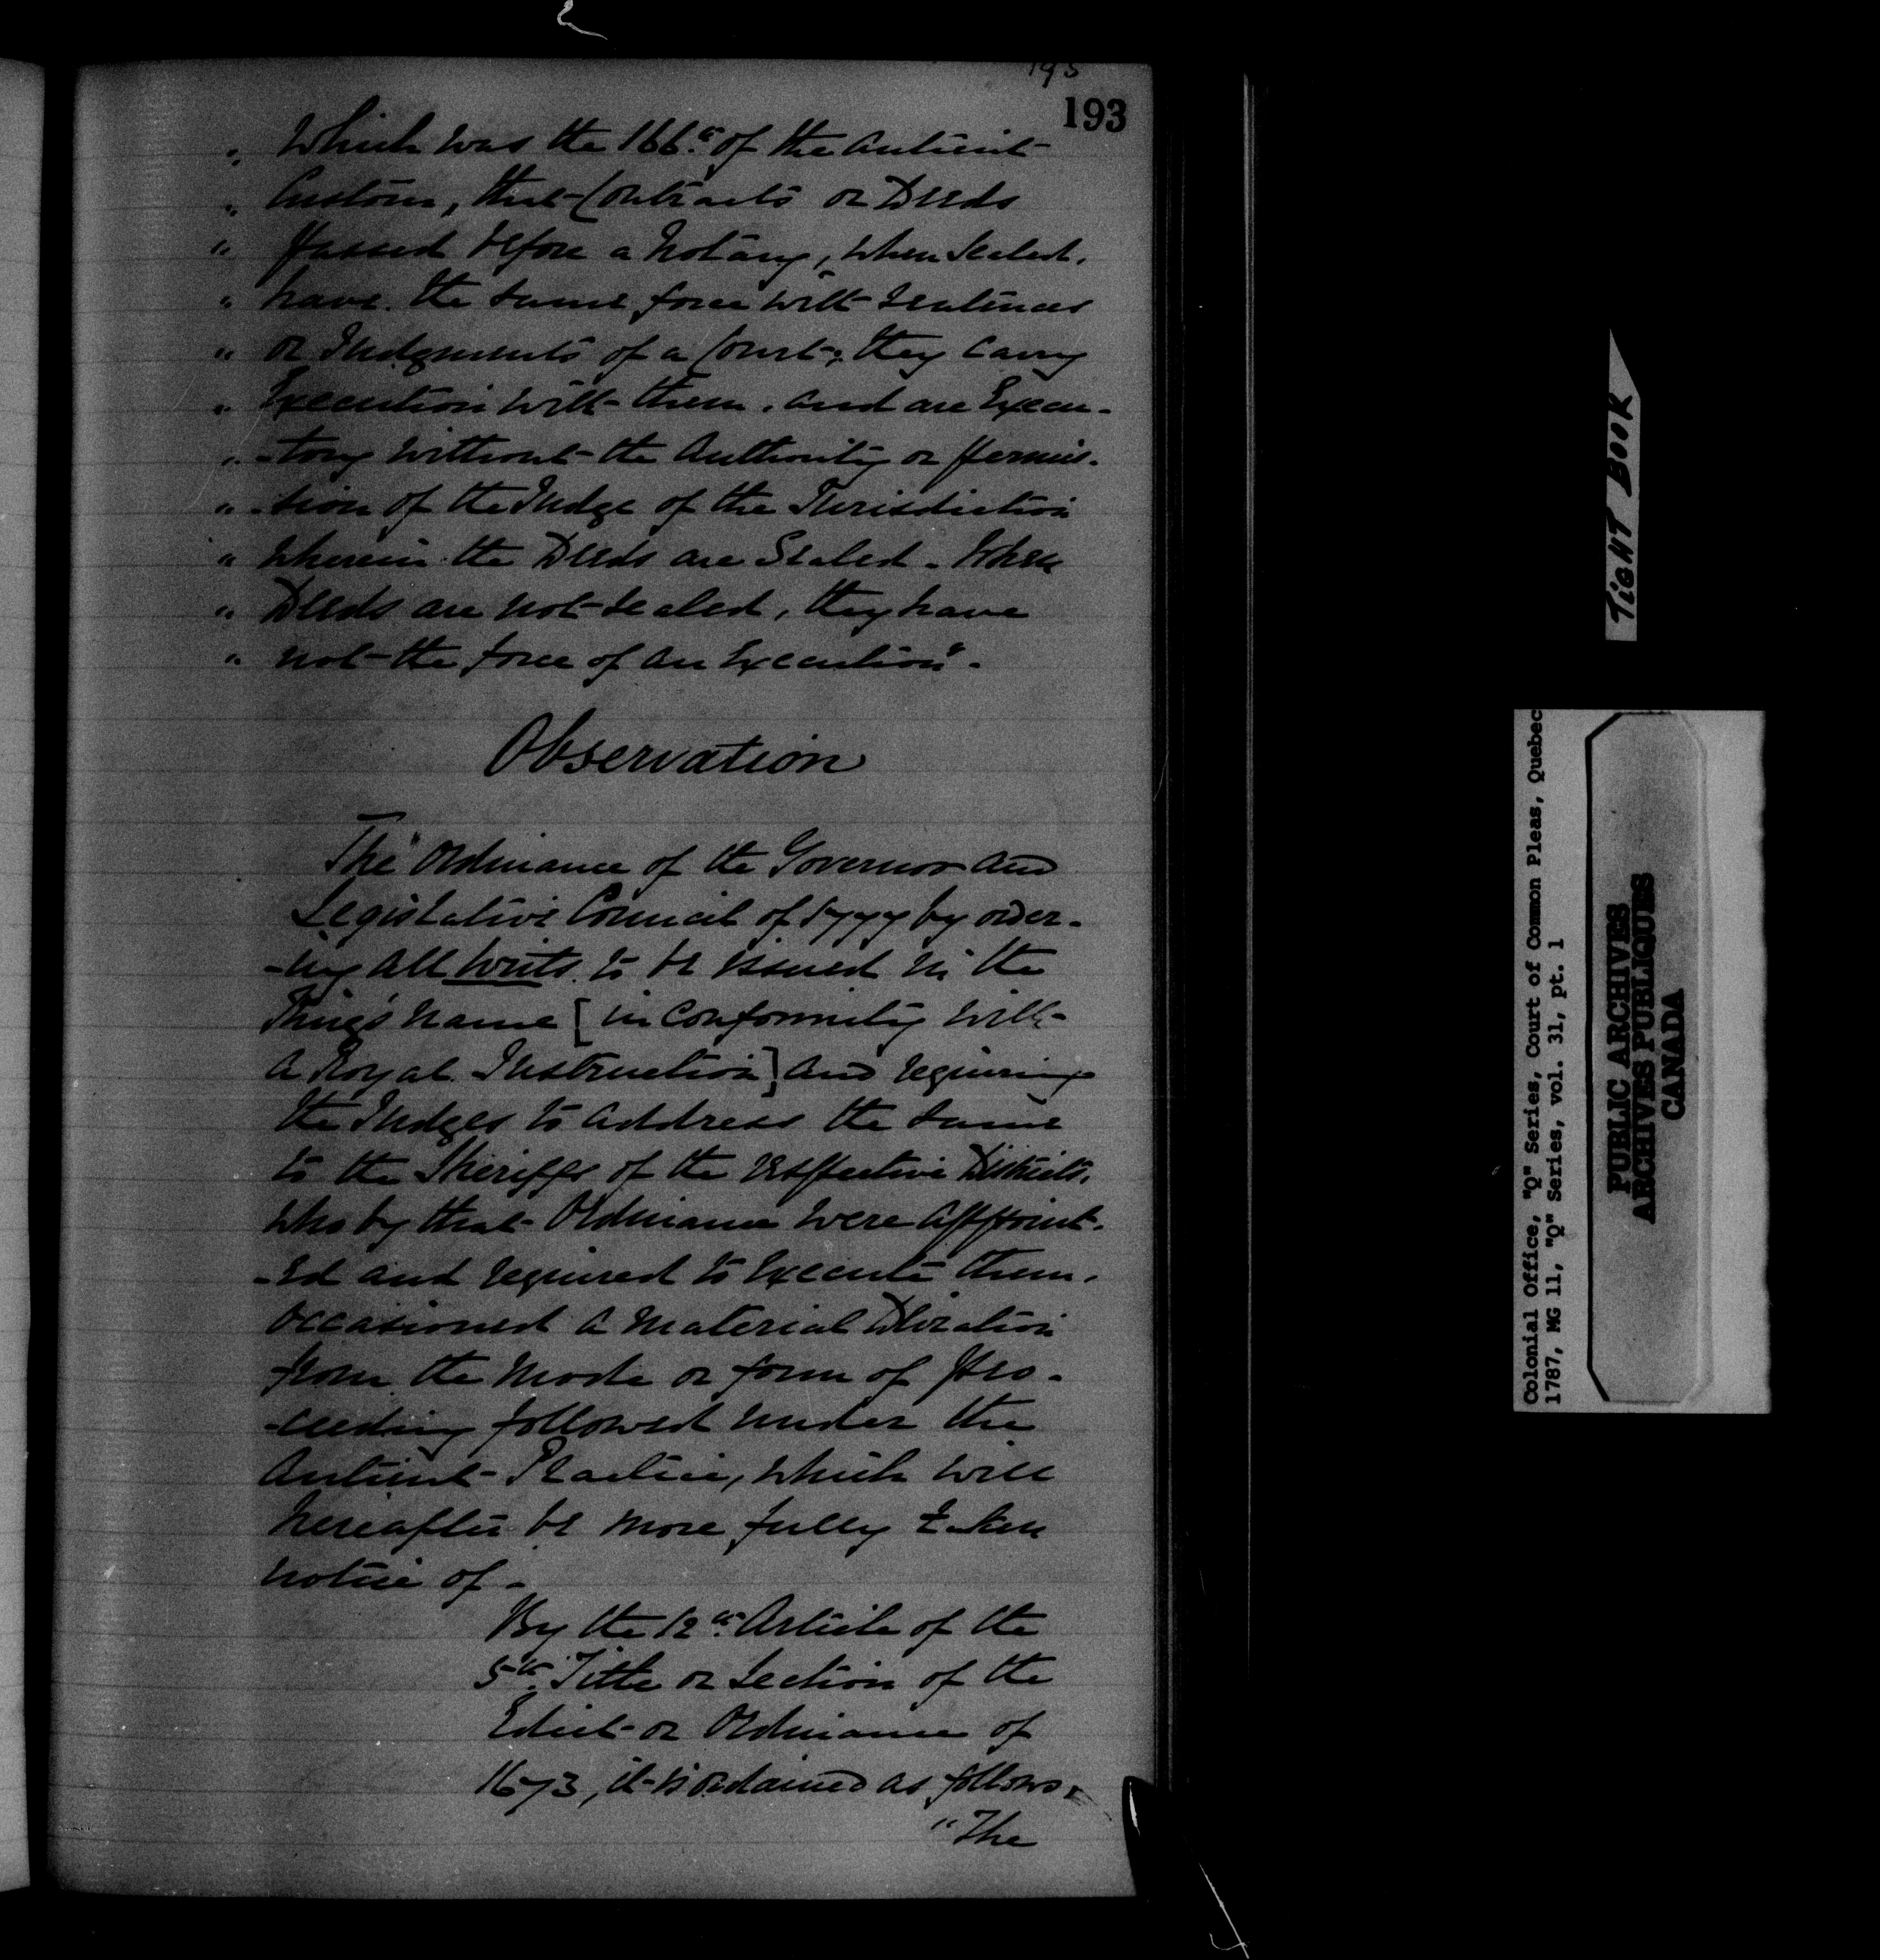 193
193
" Which was the 166.th of the Antient
" Custom, that Contracts or Deeds
" passed before a Notary, when Sealed,
" have the same force with Sentences
" or Judgments of a Court; they carry
" Execution with them, and are Execu-
" -tory without the Authority or permis-
" -sion of the Judge of the Jurisdiction
" wherein the Deeds are Sealed. When
" Deeds are not sealed, they have
" not the force of an Execution".
Observation
The Ordinance of the Governor and
Legislative Council of 1777 by order-
-ing all Writs to be issued in the
King's name [in Conformity with
a Royal Instruction] and requiring
the Judges to address the same
to the Sheriffs of the respective Districts,
who by that Ordinance were appoint-
-ed and required to Execute them,
occasioned a material Deviation
from the mode or form of pro-
-ceeding followed under the
Antient Practice, which will
hereafter be more fully taken
notice of -
By the 12th. Article of the
5th. Title or Section of the
Edict or Ordinance of
1673, it is ordained as follows,
"The
TIGHT BOOK
Colonial Office, "Q" Series, Court of Common Pleas, Quebec
1787, MG 11, "Q" Series, vol. 31, pt. 1
PUBLIC ARCHIVES
ARCHIVES PUBLIQUES
CANADA